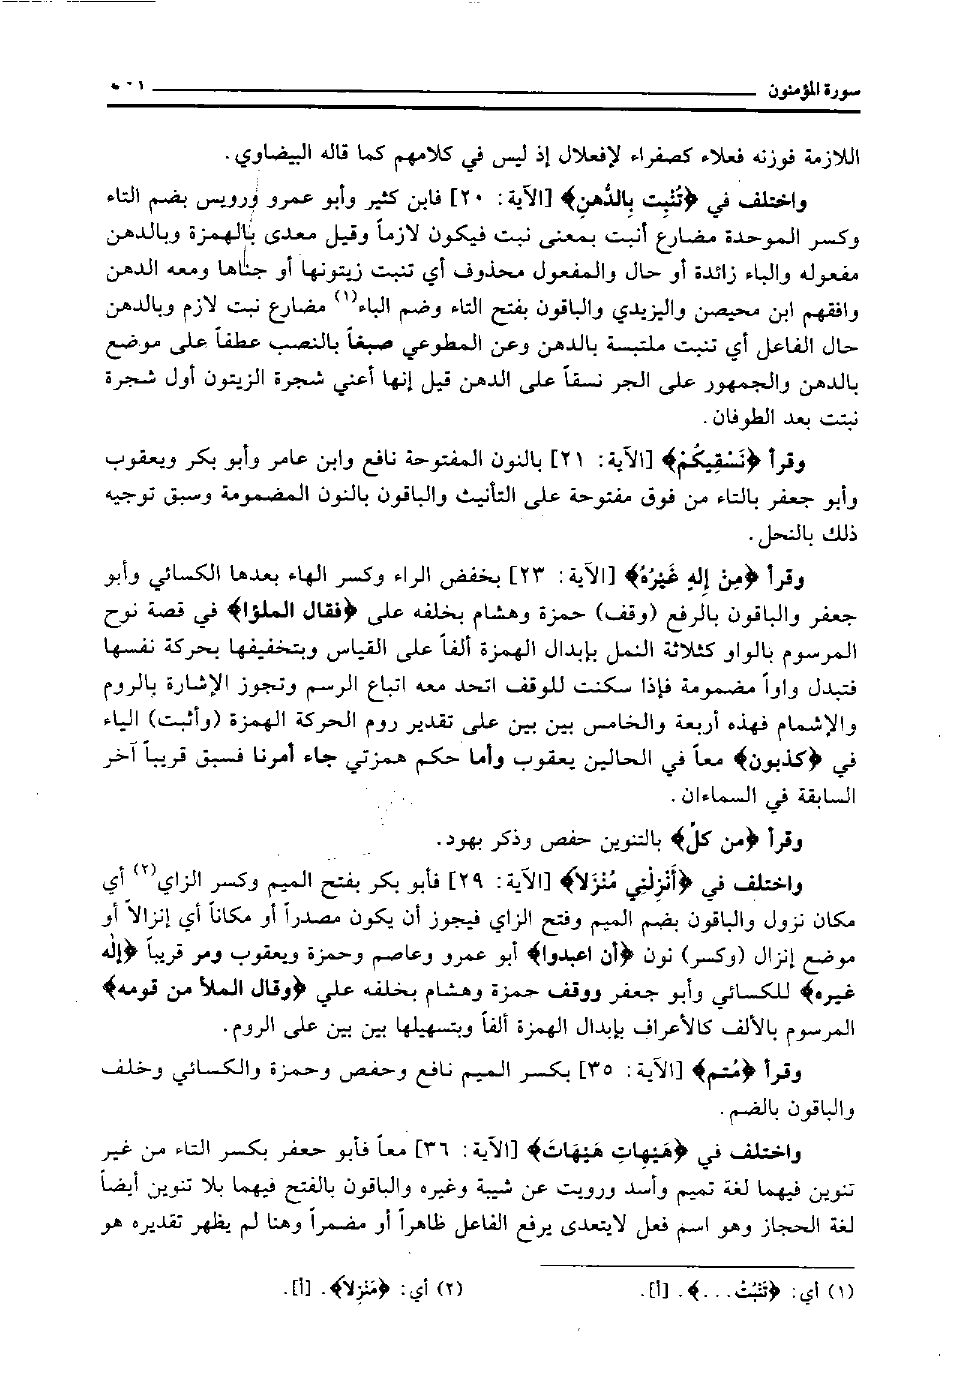 سورة المؤمنون
اللازمة فوزنه فعلاء كصفراء لإفعلال إذ ليس في كلامهم كما قاله البيضاوي.
واختلف في ﴿تُنْبِت بِالدُّهنِ﴾ [الآية: ٢٠] فابن كثير وأبو عمرو ورويس بضم التاء
وكسر الموحدة مضارع أنبت بمعنى نبت فيكون لازماً وقيل معدى بالهمزة وبالدهن
مفعوله والباء زائدة أو حال والمفعول محذوف أي تنبت زيتونها أو جناها ومعه الدهن
وافقهم ابن محيصن واليزيدي والباقون بفتح التاء وضم الباء(١) مضارع نبت لازم وبالدهن
حال الفاعل أي تنبت ملتبسة بالدهن وعن المطوعي صبغاً بالنصب عطفاً على موضع
بالدهن والجمهور على الجر نسقاً على الدهن قيل إنها أعني شجرة الزيتون أول شجرة
نبتت بعد الطوفان.
وقرأ ﴿نَسْقِيكُمْ﴾ [الآية: ٢١] بالنون المفتوحة نافع وابن عامر وأبو بكر ويعقوب
وأبو جعفر بالتاء من فوق مفتوحة على التأنيث والباقون بالنون المضمومة وسبق توجيه
ذلك بالنحل.
وقرأ ﴿مِنْ إِلهٍ غَيْرُهُ﴾ [الآية: ٢٣] بخفض الراء وكسر الهاء بعدها الكسائي وأبو
جعفر والباقون بالرفع (وقف) حمزة وهشام بخلفه على ﴿فقال الملؤا﴾ في قصة نوح
المرسوم بالواو كثلاثة النمل بإبدال الهمزة ألفاً على القياس وبتخفيفها بحركة نفسها
فتبدل واواً مضمومة فإذا سكنت للوقف اتحد معه اتباع الرسم وتجوز الإشارة بالروم
والإشمام فهذه أربعة والخامس بين بين على تقدير روم الحركة الهمزة (وأثبت) الياء
في ﴿كذبون﴾ معاً في الحالين يعقوب وأما حكم همزتي جاء أمرنا فسبق قريباً آخر
السابقة في السماءان.
وقرأ ﴿من كلّ﴾ بالتنوين حفص وذكر بهود.
واختلف في ﴿أَنْزِلْنِي مُنْزَلاً﴾ [الآية: ٢٩] فأبو بكر بفتح الميم وكسر الزاي(٢) أي
مكان نزول والباقون بضم الميم وفتح الزاي فيجوز أن يكون مصدراً أو مكاناً أي إنزالاً أو
موضع إنزال (وكسر) نون ﴿أن اعبدوا﴾ أبو عمرو وعاصم وحمزة ويعقوب ومر قريباً ﴿إله
غيره﴾ للكسائي وأبو جعفر ووقف حمزة وهشام بخلفه على ﴿وقال الملأ من قومه﴾
المرسوم بالألف كالأعراف بإبدال الهمزة ألفاً وبتسهيلها بين بين على الروم.
وقرأ ﴿مُتم﴾ [الآية: ٣٥] بكسر الميم نافع وحفص وحمزة والكسائي وخلف
والباقون بالضم.
واختلف في ﴿هَيْهاتِ هَيْهَاتَ﴾ [الآية: ٣٦] معاً فأبو جعفر بكسر التاء من غير
تنوين فيهما لغة تميم وأسد ورويت عن شيبة وغيره والباقون بالفتح فيهما بلا تنوين أيضاً
لغة الحجاز وهو اسم فعل لايتعدى يرفع الفاعل ظاهراً أو مضمراً وهنا لم يظهر تقديره هو
(١) أي: ﴿تَنْبُتُ...﴾. [أ].
(٢) أي: ﴿مَنْزِلاً﴾. [أ].